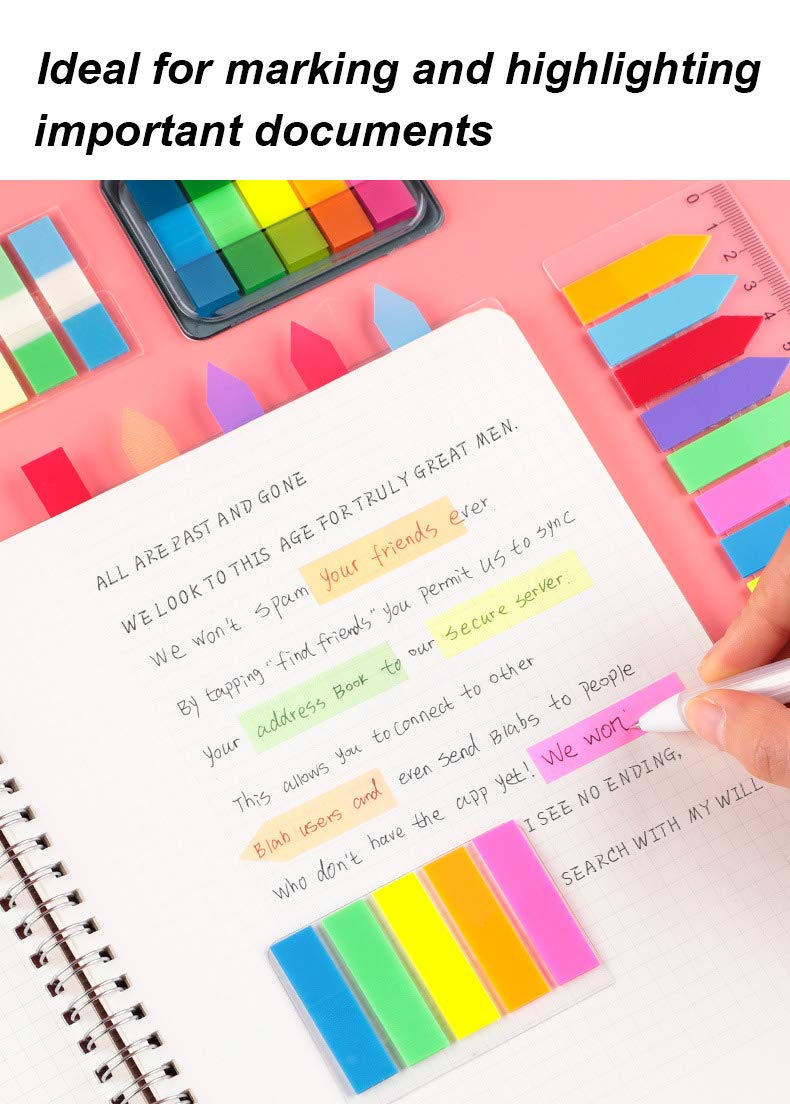 Ideal for marking and highlighting
important documents
0 1 2 3 4 5
ALL ARE PAST AND GONE
WE LOOK TO THIS AGE FOR TRULY GREAT MEN.
We won't spam your friends ever.
By tapping "find friends" you permit us to sync
your address Book to our secure server.
This allows you to connect to other
Blab users and even send Blabs to people
who don't have the app yet! We won'
I SEE NO ENDING,
SEARCH WITH MY WILL